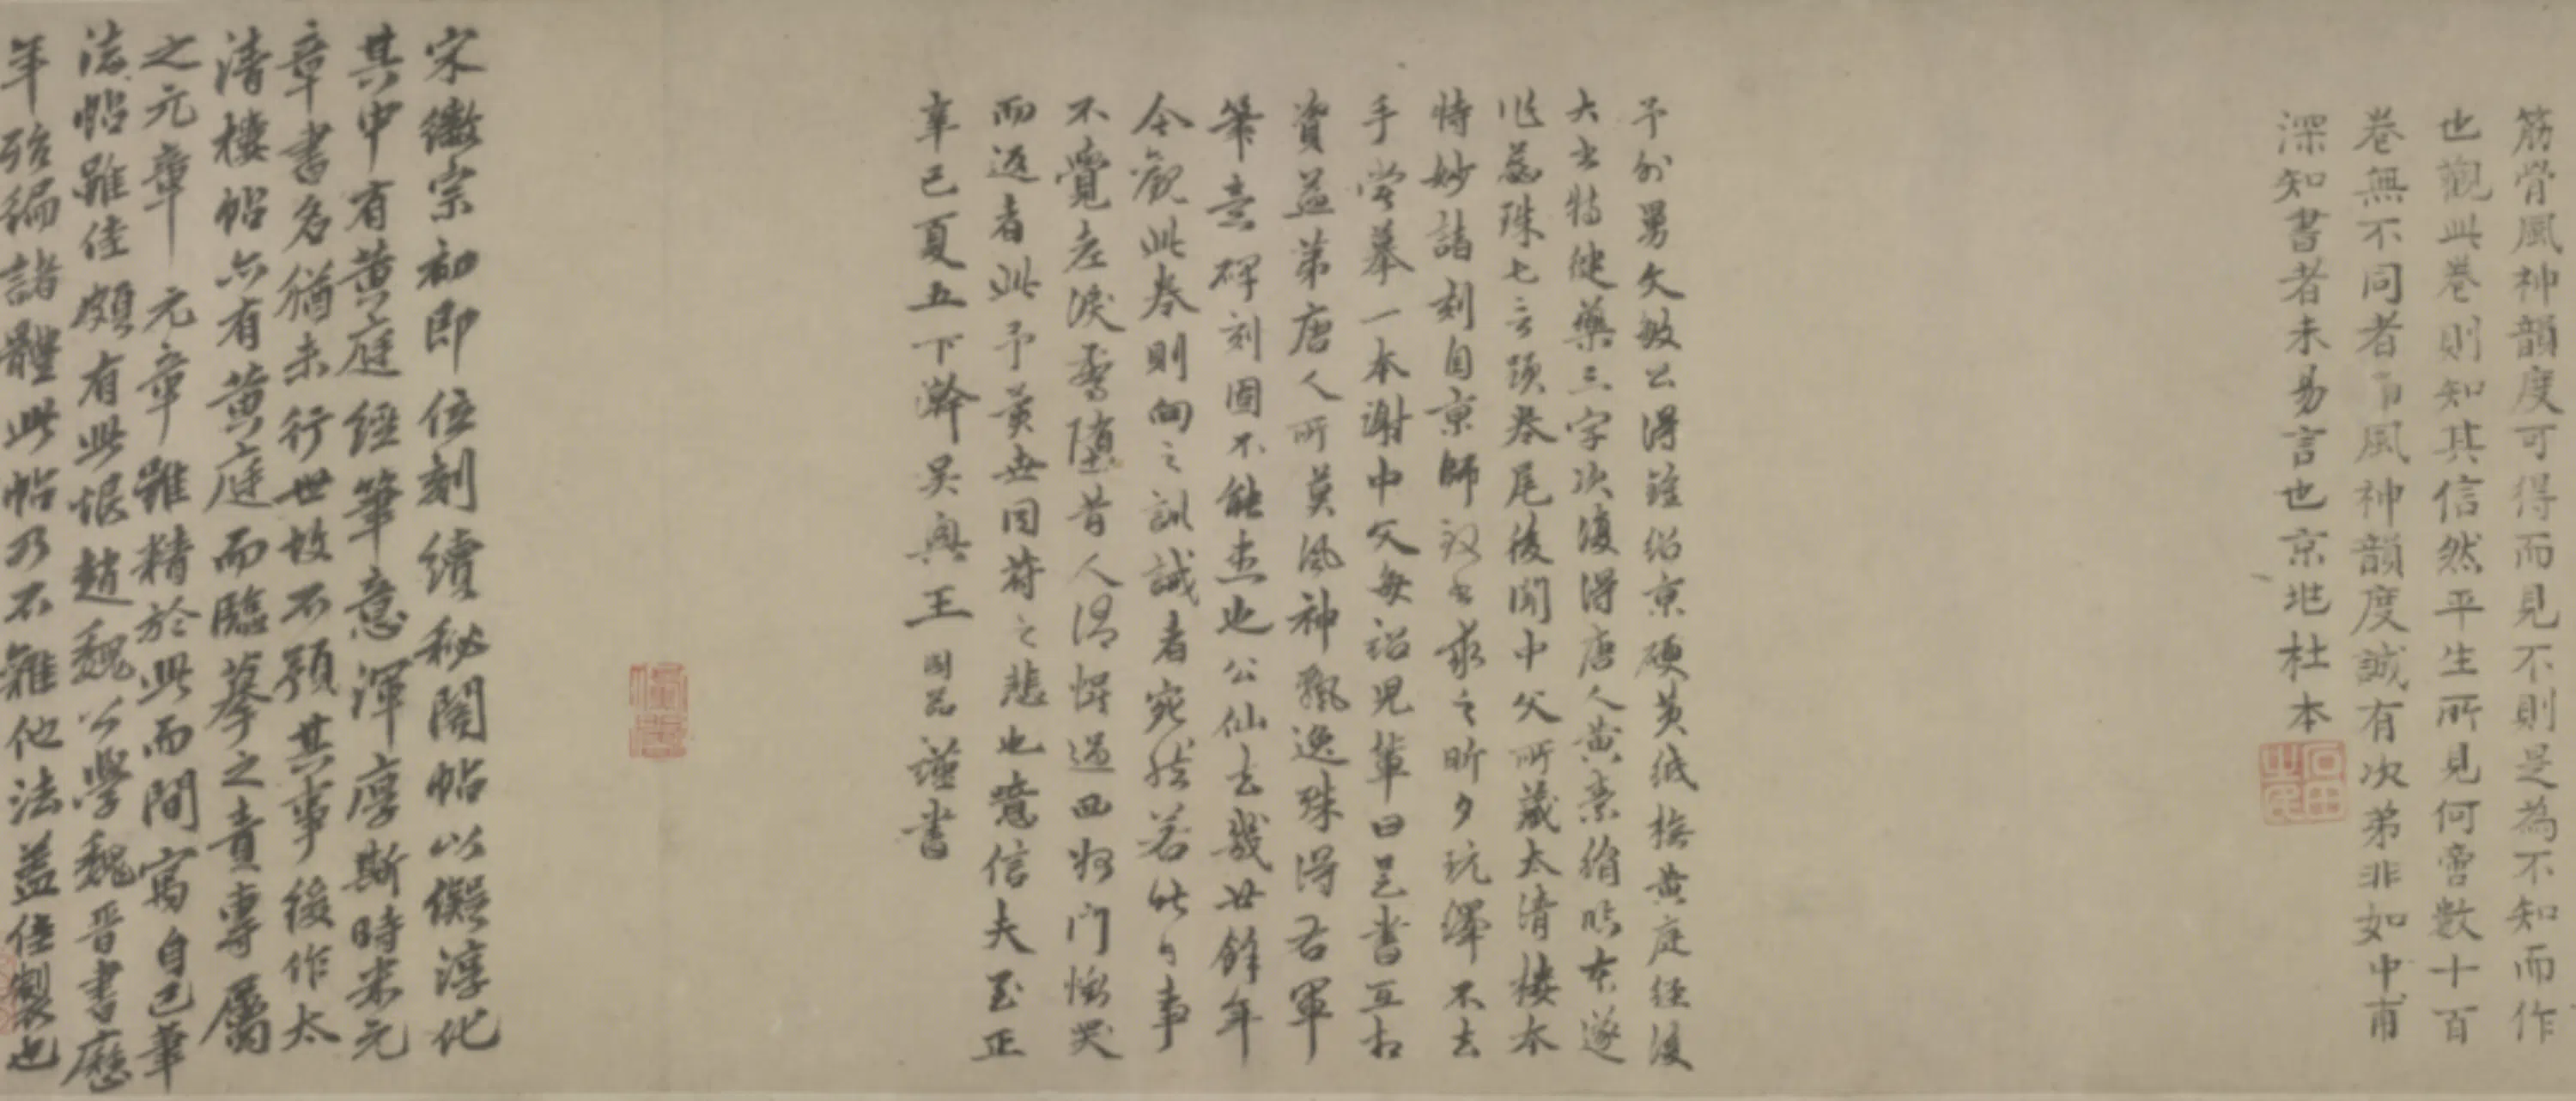 筋骨風神韻度可得而見不則是為不知而作
也觀此卷則知其信然平生所見何啻數十百
卷無不同者而風神韻度誠有次第非如中甫
深知書者未易言也京兆杜本
予外舅文敏公得鍾紹京硬黃紙橅黃庭經後
大書特健藥三字次復得唐人黃素絹臨本遂
作蕊珠七言題卷尾後聞中父所藏太清樓本
特妙諸刻自京師致書求之昕夕玩繹不去
手嘗摹一本謝中父每語兒輩曰是書互相
資益第唐人所莫風神飄逸殊得右軍
筆意碑刻固不能盡也公仙去幾廿餘年
今觀此卷則向之訓誡者宛然若昨日事
不覺老淚霑墮昔人酒惺過西州門慟哭
而返者此予黃世同符之悲也噫信夫至正
辛巳夏五下澣吳興王國器謹書
宋徽宗初即位刻續秘閣帖以儗淳化
其中有黃庭經筆意渾厚斯時米元
章書名猶未行世故不預其事後作太
清樓帖亦有黃庭而臨摹之責專屬
之元章元章雖精於此而間寓自己筆
法帖雖佳頗有此恨趙魏公學魏晉書歷
年殆徧諸體此帖乃不雜他法蓋佳製也